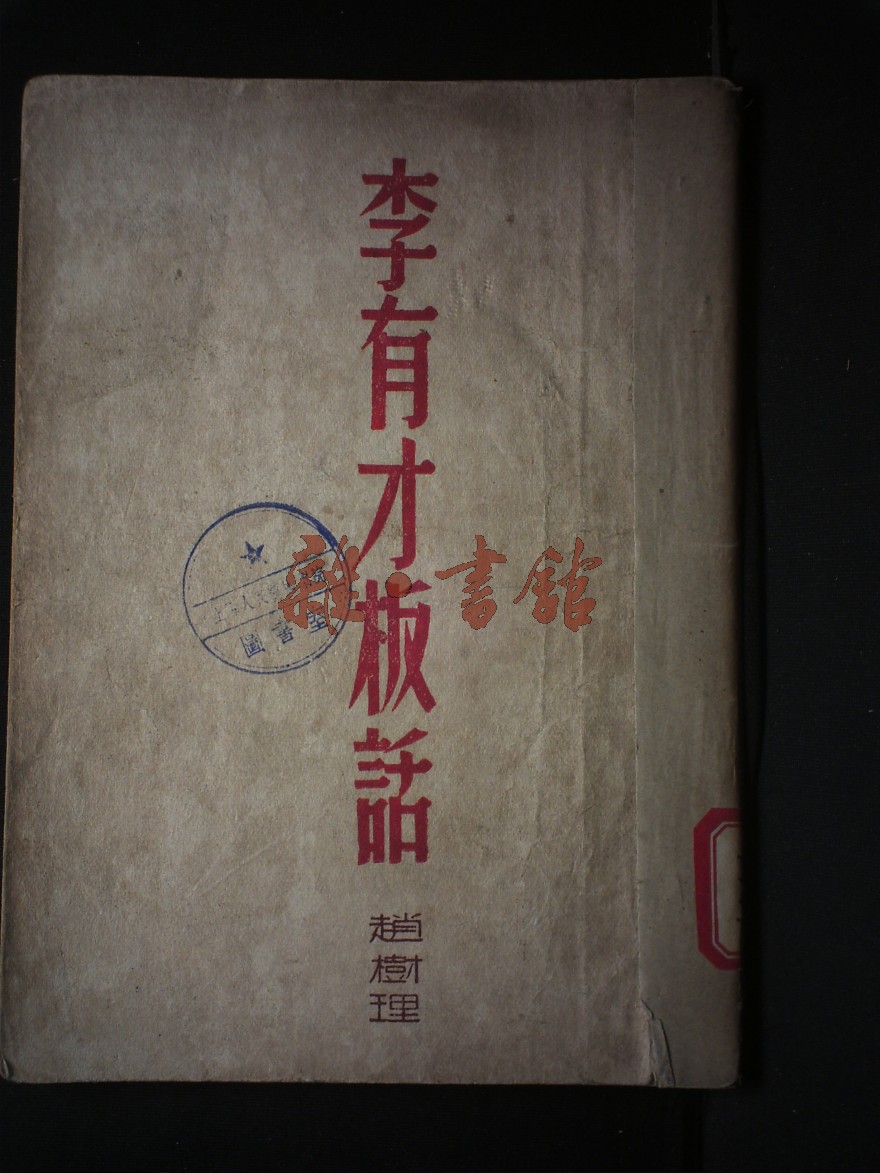 李有才板話
趙樹理
雜·書館
圖書室